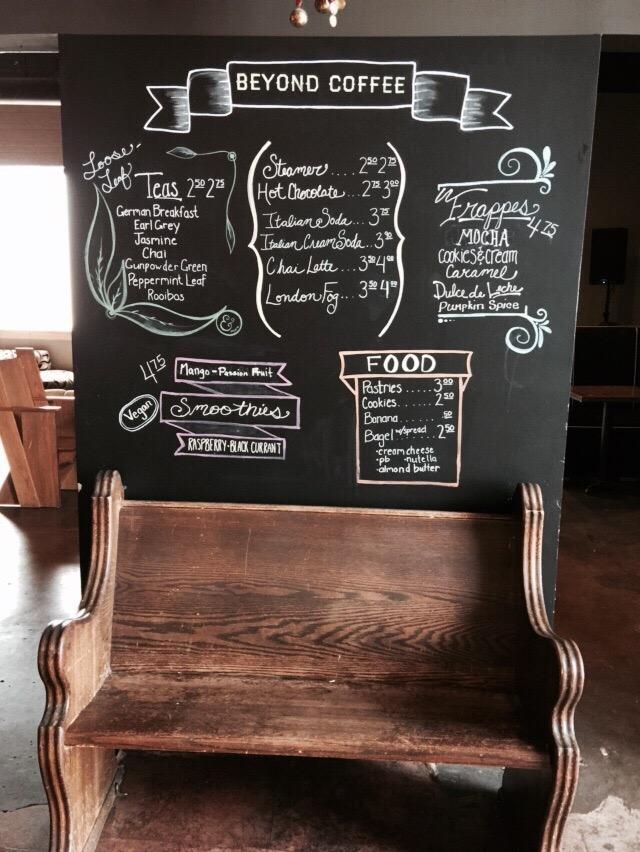 BEYOND COFFEE
Loose-
Leaf
Teas 2.50 2.75
German Breakfast
Earl Grey
Jasmine
Chai
Gunpowder Green
Peppermint Leaf
Rooibos
&
Steamer.... 2.50 2.75
Hot Chocolate... 2.75 3.00
Italian Soda... 3.75
Italian Cream Soda..3.90
Chai Latte... 3.50 4.00
London Fog... 3.50 4.00
Frappes
4.75
MOCHA
Cookies & Cream
Caramel
Dulce de Leche
Pumpkin Spice
4.75
Mango-Passion Fruit
Vegan
Smoothies
RASPBERRY-BLACK CURRANT
FOOD
Pastries...... 3.00
Cookies...... 2.50
Banana...... .50
Bagel w/spread .. 2.50
·cream cheese
·pb ·nutella
·almond butter